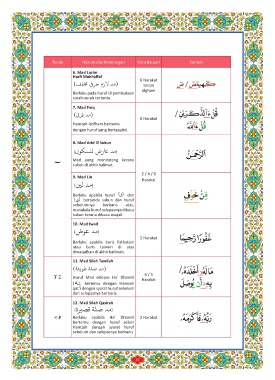 Tanda
Hukum dan Keterangan
Cara Bacaan
Contoh
6. Mad Lazim
Harfi Mukhaffaf
(مد لازم حرفي مخفف)
Berlaku pada huruf di pembukaan
surah-surah tertentu.
6 Harakat
tanpa
idgham
كهيعص / ص
7. Mad Farq
(مد فرق)
Hamzah istifham bertemu
dengan huruf yang bertasydid.
6 Harakat
قُلْ ءَآلذَّكَرَيْنِ
قُلْ ءَآللَّهُ
8. Mad Arid li Sukun
(مد عارض للسكون)
Mad yang mendatang kerana
sukun di akhir kalimat.
الرَّحْمَٰنُ
2 / 4 / 6
Harakat
9. Mad Lin
(مد لين)
Berlaku apabila huruf (و) dan
(ي) bertanda sukun dan huruf
sebelumnya berbaris atas,
manakala huruf selepasnya dibaca
sukun kerana dibaca waqaf.
مِّنْ خَوْفٍ
10. Mad Iwad
(مد عوض)
Berlaku apabila baris Fathatain
atau baris tanwin di atas
diwaqafkan di akhir kalimah.
2 Harakat
غَفُورًا رَّحِيمًا
11. Mad Silah Tawilah
(مد صلة طويلة)
Huruf Mad selepas Ha' Dhomir
bertemu dengan Hamzah
qat'i dengan syarat huruf sebelum
dan selepasnya berbaris.
4 / 5
Harakat
مَالَهُۥٓ أَخْلَدَهُۥ
بِهِۦٓ أَن يُوصَلَ
12. Mad Silah Qasirah
(مد صلة قصيرة)
Berlaku apabila Ha' Dhomir
bertemu dengan huruf selain
Hamzah dengan syarat huruf
sebelum dan selepasnya berbaris.
2 Harakat
رَبُّهُۥ فَأَكْرَمَهُۥ